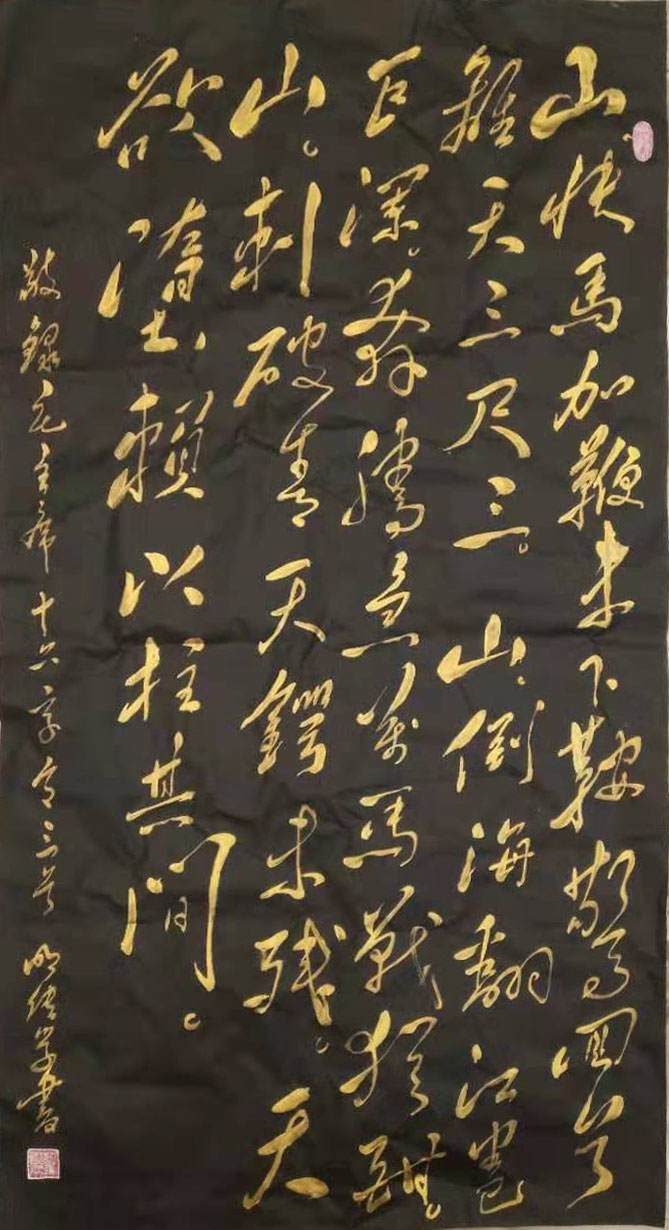 山快馬加鞭未下鞍驚回首
離天三尺三。山、倒海翻江卷
巨瀾。奔騰急萬馬戰猶酣。
山。刺破青天鍔未殘。天
欲墮賴以拄其間。
敬錄毛主席十六字令三首